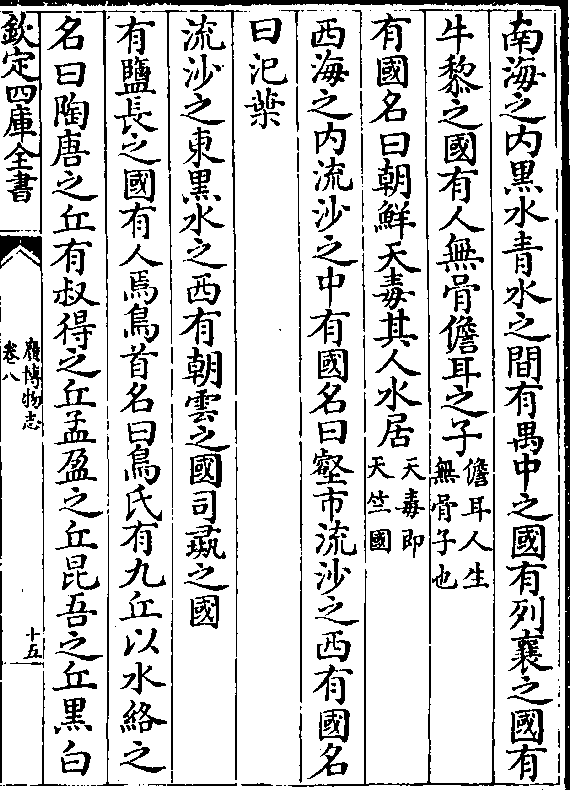 南海之内黒水青水之間有禺中之國有列襄之國有
牛黎之國有人無骨儋耳之子儋耳人生無骨子也
有國名曰朝鮮天毒其人水居天毒即天竺國
西海之内流沙之中有國名曰壑市流沙之西有國名
曰汜葉
流沙之東黒水之西有朝雲之國司彘之國
有鹽長之國有人焉鳥首名曰鳥氏有九丘以水絡之
名曰陶唐之丘有叔得之丘孟盈之丘昆吾之丘黒白
欽定四庫全書
廣博物志
卷八
十五